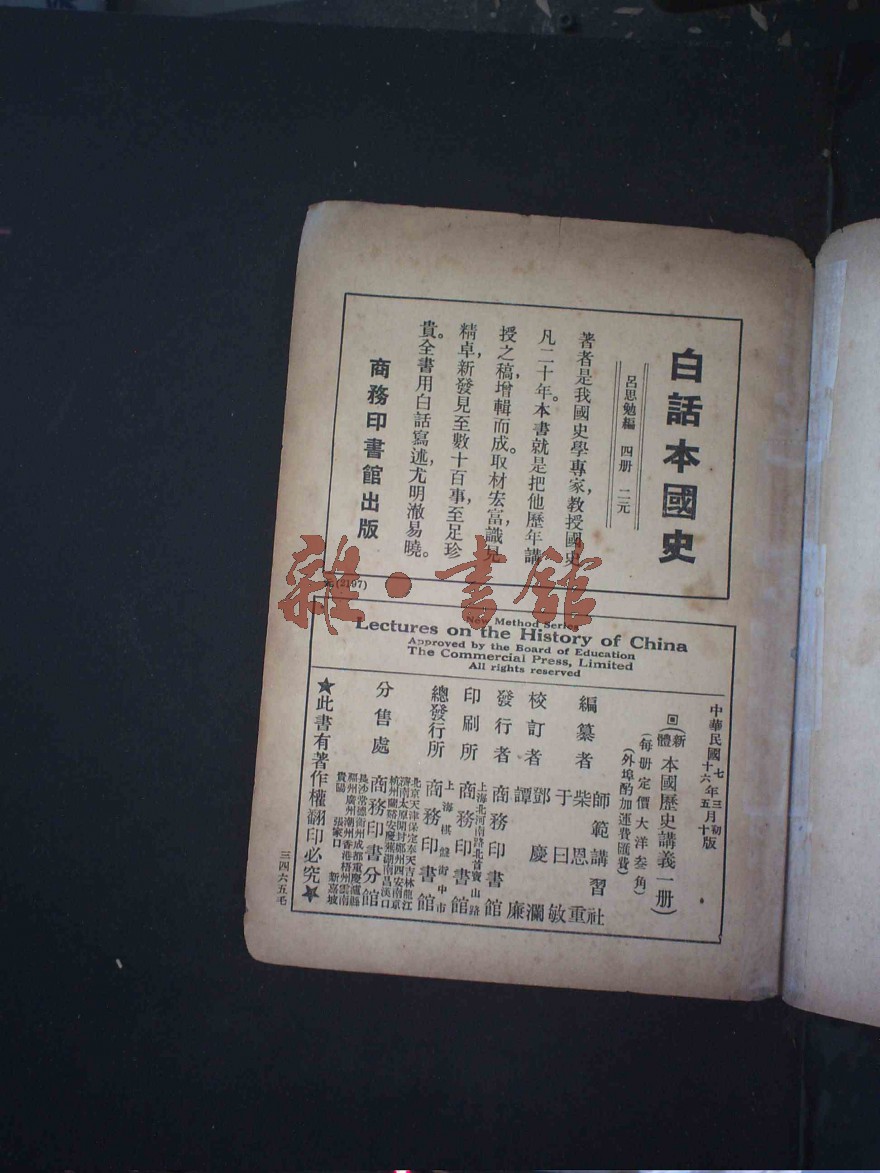 白話本國史
呂思勉編 四册 二元
著者是我國史學專家,教授國史
凡二十年。本書就是把他歷年講
授之稿,增輯而成。取材宏富,識見
精卓,新發見至數十百事,至足珍
貴。全書用白話寫述,尤明澈易曉。
商務印書館出版
(2197)
雜·書館
New Method Series
Lectures on the History of China
Approved by the Board of Education
The Commercial Press, Limited
All rights reserved
中華民國七年三月初版
十六年五月十版
(新體本國歷史講義一册)
(每册定價大洋叁角)
(外埠酌加運費匯費)
編纂者 師範講習社
柴恩重
于曰敏
校訂者 鄧慶瀾
譚廉
發行者 商務印書館
印刷所 上海北河南路北首寶山路
商務印書館
總發行所 上海棋盤街中市
商務印書館
分售處 北京天津保定奉天吉林龍江
濟南太原開封鄭州西安南京
杭州蘭谿安慶蕪湖南昌漢口
商務印書分館
長沙常德衡州成都重慶瀘縣
福州廣州潮州香港梧州雲南
貴陽 張家口 新嘉坡
★此書有著作權翻印必究★
三四六五毛